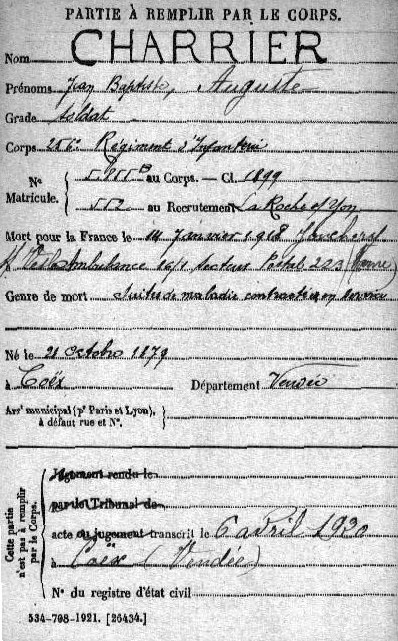 PARTIE À REMPLIR PAR LE CORPS.
CHARRIER
Nom
Prénoms Jean Baptiste, Auguste
Grade Soldat
Corps 256e Régiment d'Infanterie
No Matricule. au Corps. — Cl. 1899
552 au Recrutement La Roche s/Yon
Mort pour la France le 14 Janvier 1918
Ambulance 16/1 secteur Postal 223
Genre de mort Suites de maladie contractée en service
Né le 21 octobre 1879
à Coëx Département Vendée
Arrt municipal (pr Paris et Lyon), à défaut rue et No.
Cette partie n'est pas à remplir par le Corps.
Jugement rendu le
par le Tribunal de
acte ou jugement transcrit le 6 avril 1920
à Coëx (Vendée)
No du registre d'état civil
534-708-1921. [26434.]